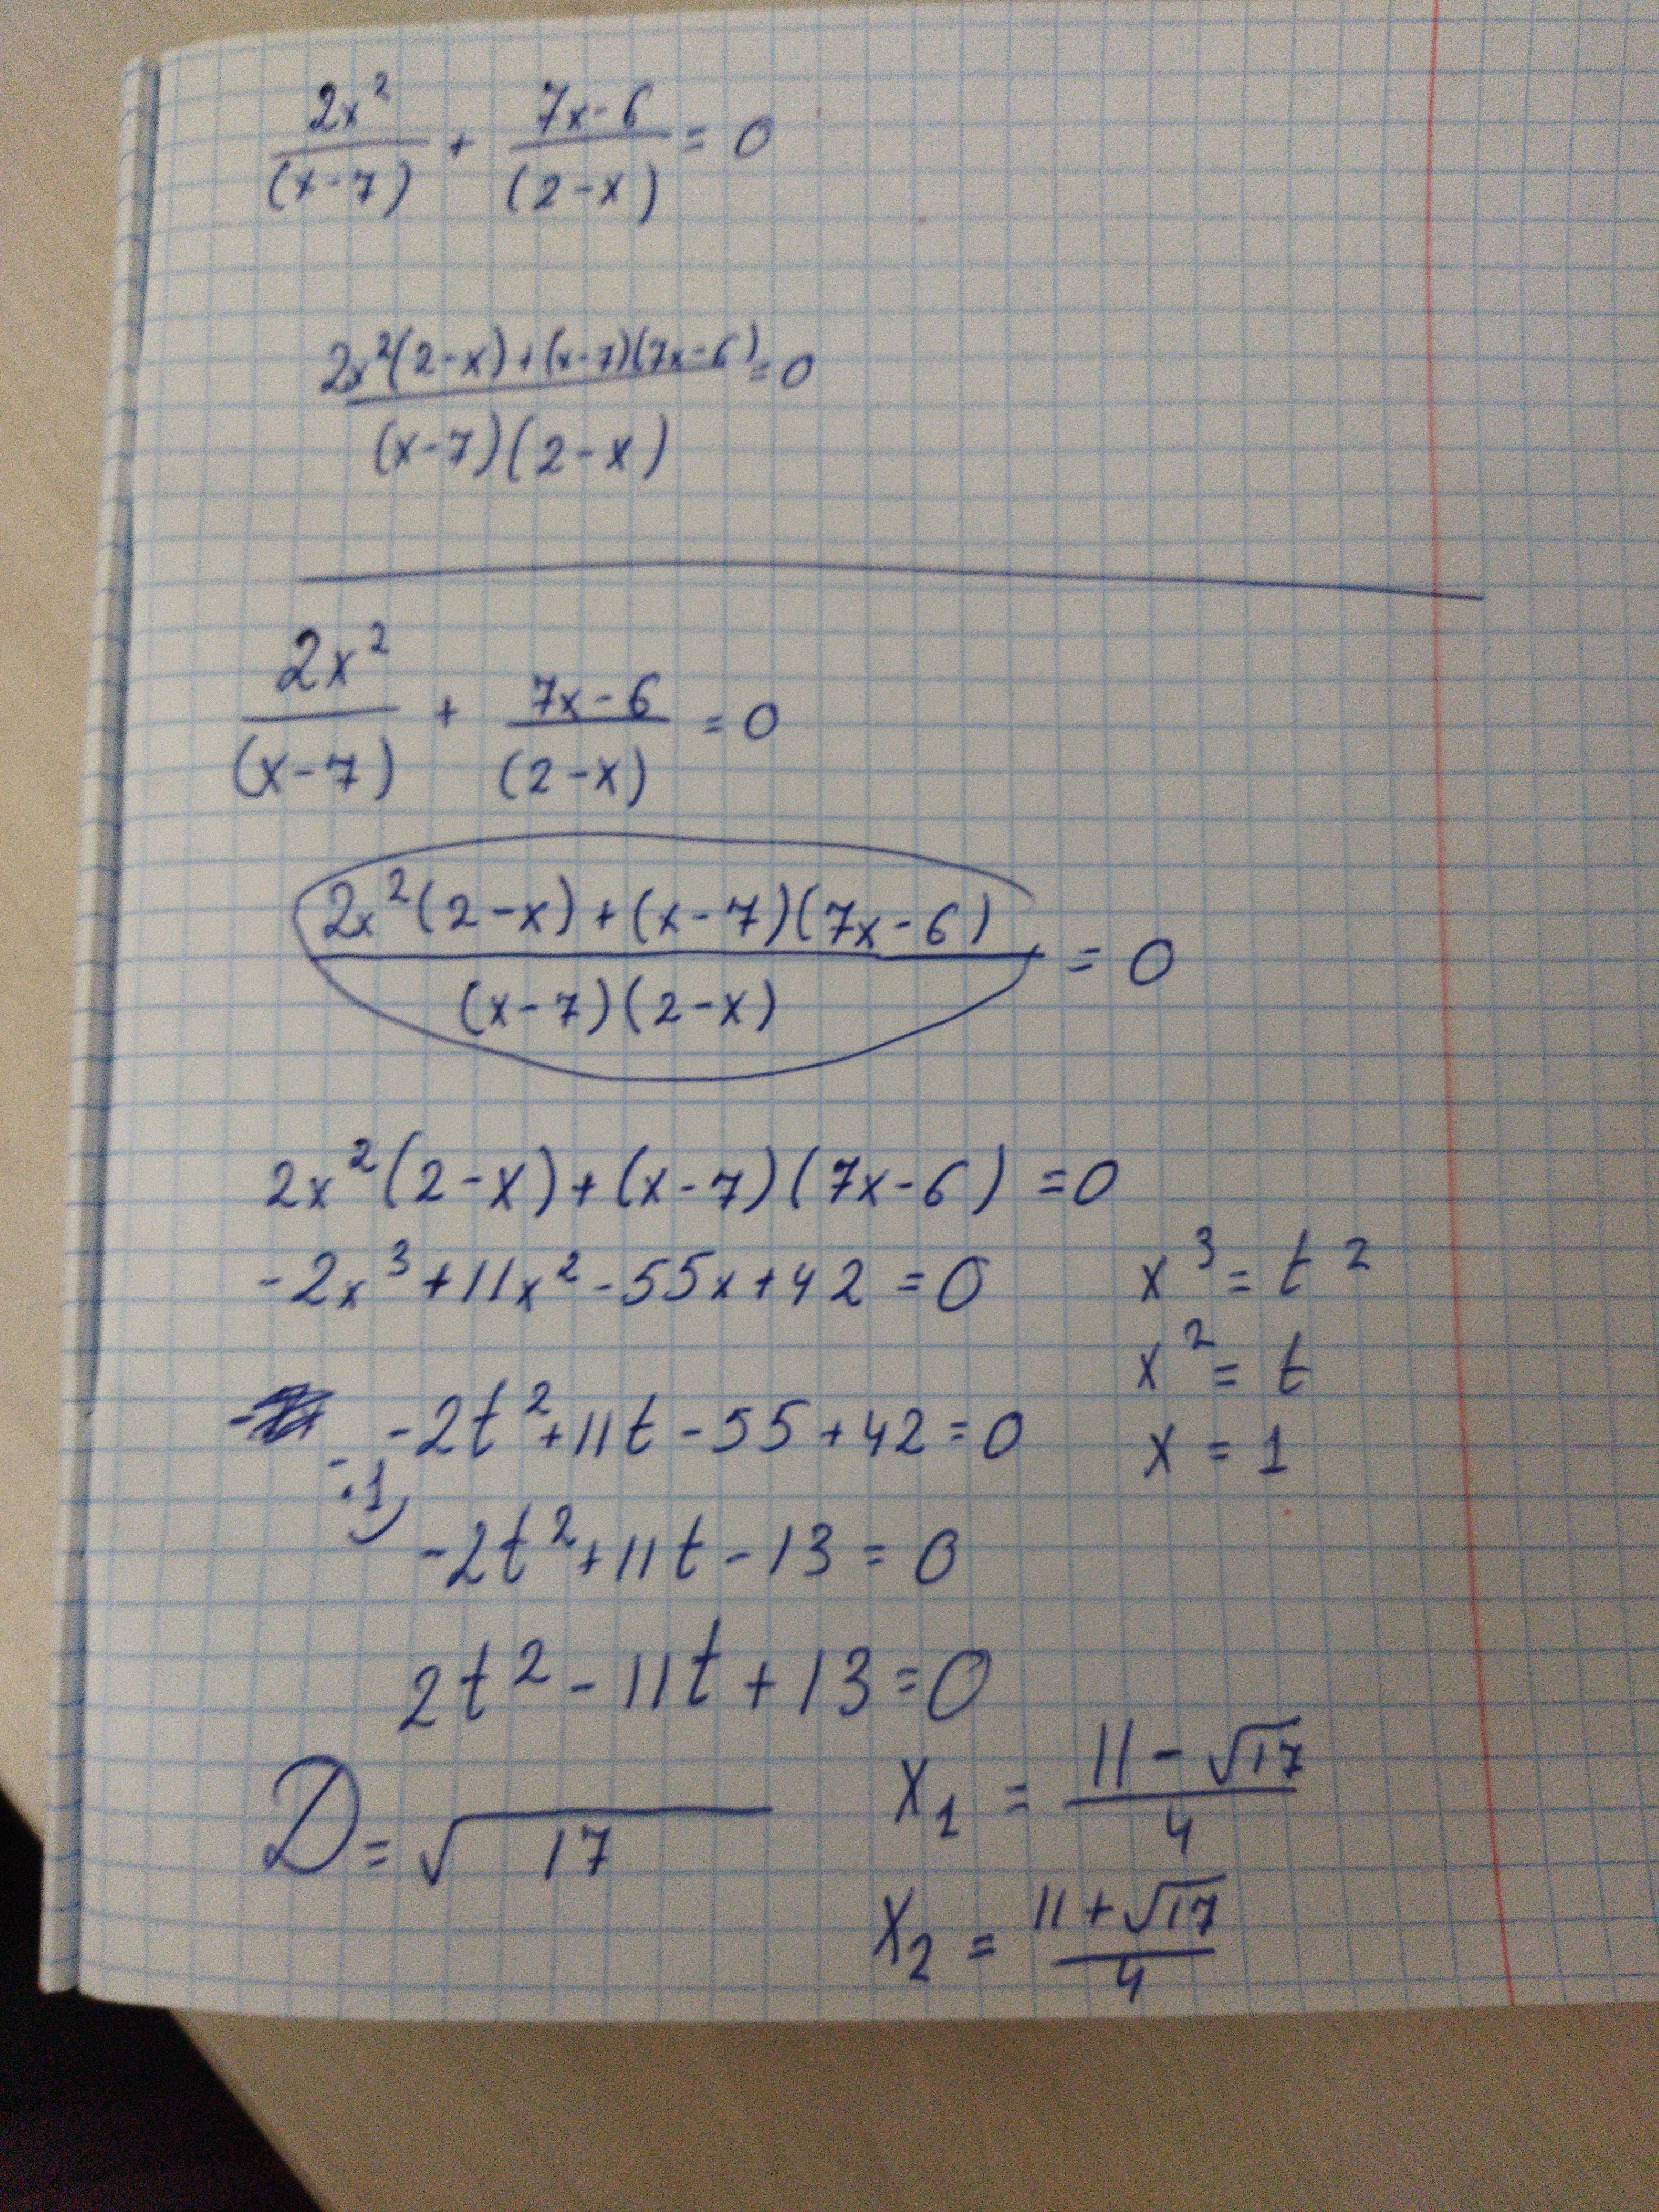 2x²/(x-7) + 7x-6/(2-x) = 0
2x²(2-x)+(x-7)(7x-6)/(x-7)(2-x) = 0
2x²/(x-7) + 7x-6/(2-x) = 0
2x²(2-x)+(x-7)(7x-6)/(x-7)(2-x) = 0
2x²(2-x)+(x-7)(7x-6) = 0
-2x³+11x²-55x+42 = 0
x³ = t²
x² = t
x = 1
-2t²+11t-55+42 = 0
·-1)
-2t²+11t-13 = 0
2t²-11t+13 = 0
D = √17
x₁ = 11-√17/4
x₂ = 11+√17/4